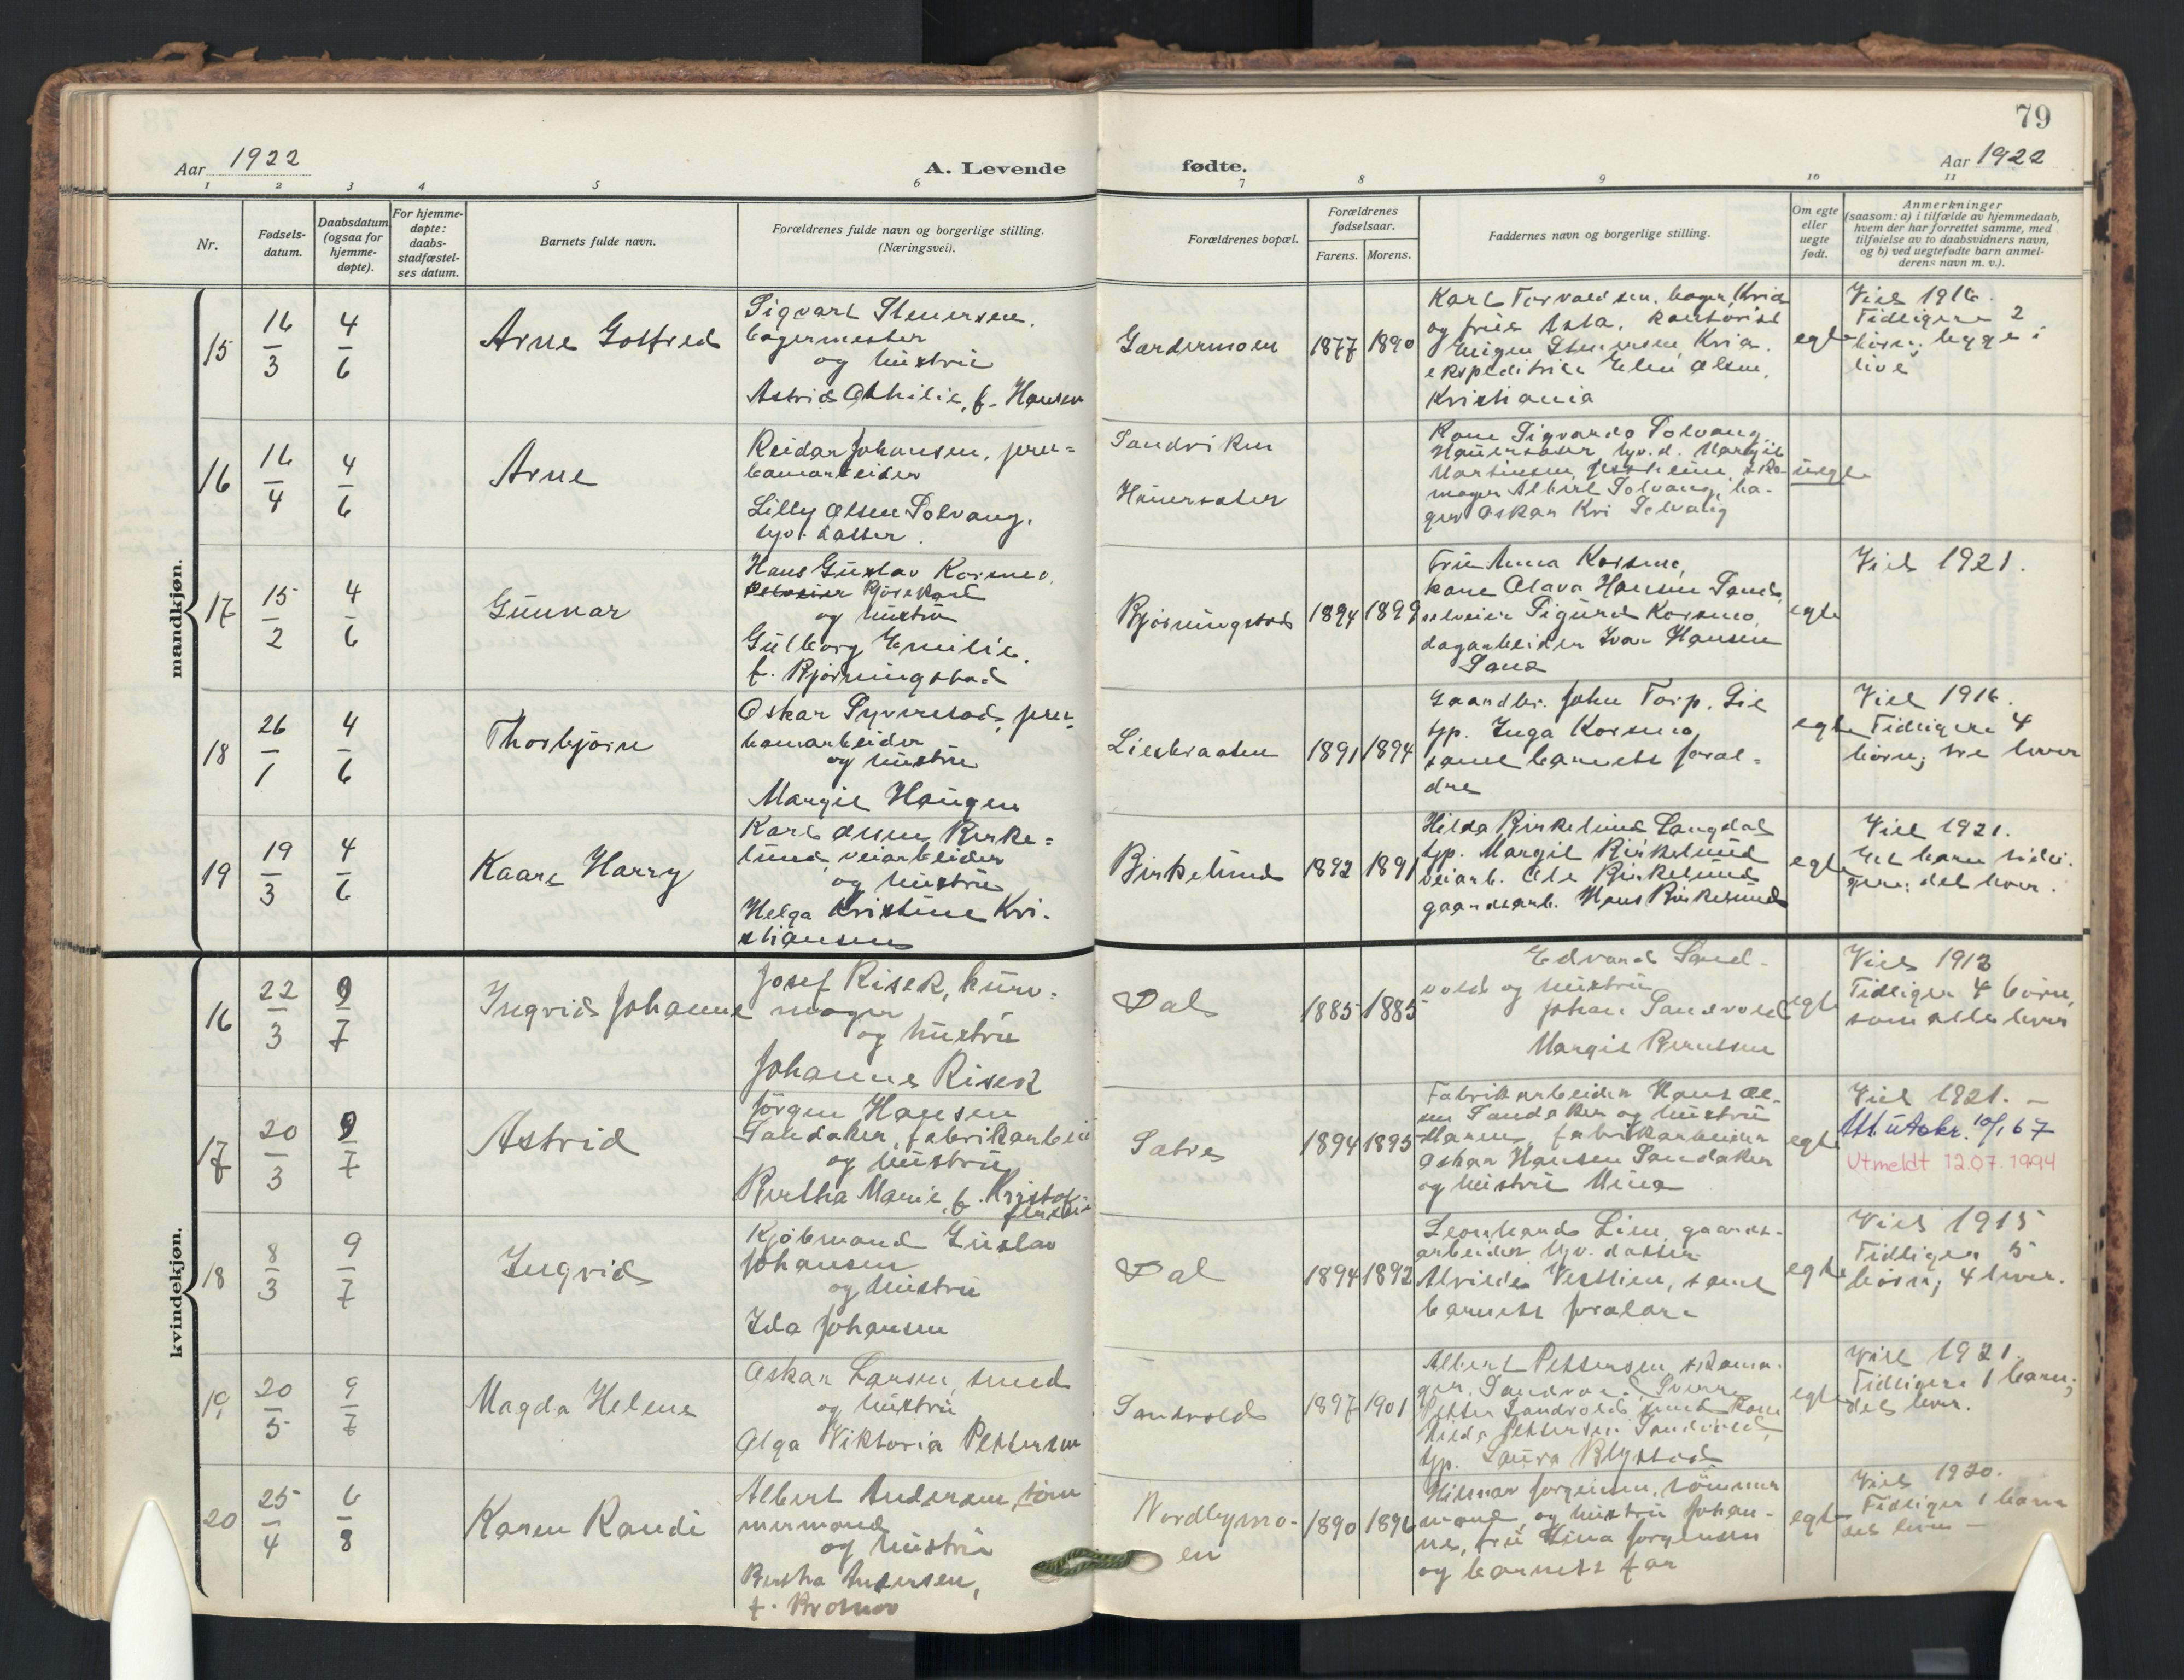 79
Aar 1922
A. Levende
fødte.
Aar 1922
1 2 3 4 5 6 7 8 9 10 11
Nr.
Fødsels-
datum.
Daabsdatum
(ogsaa for
hjemme-
døpte).
For hjemme-
døpte:
daabs-
stadfæstel-
ses datum.
Barnets fulde navn.
Forældrenes fulde navn og borgerlige stilling.
(Næringsvei).
Forældrenes bopæl.
Forældrenes
fødselsaar.
Farens. Morens.
Faddernes navn og borgerlige stilling.
Om egte
eller
uegte
født.
Anmerkninger
(saasom: a) i tilfælde av hjemmedaab,
hvem der har forrettet samme, med
tilføielse av to daabsvidners navn,
og b) ved uegtefødte barn anmel-
derens navn m. v.).
mandkjøn.
15
16/3
4/6
Arne Gotfred
Sigvart Stenersen,
bagermester
og hustru
Astrid Othilie, f. Hansen
Gardermoen
1877 1890
Karl Torvaldsen, bager, Kria
og frue Asta, kontorist
Stenersen, Kria.
ekspeditrice Elen Olsen,
Kristiania
egte
Viet 1916.
Tidligere 2
børn; begge i
live
16
16/4
4/6
Arne
Reidar Johansen, jern-
banearbeider
Lilly Olsen Solvang,
tjv. datter.
Sandviken
Hauersæter
Kone Sigvarda Solvang
Hauersæter, tjv. d. Margit
Martinsen, Jessheim, sko-
mager Albert Solvang, ba-
ger Oskar Kri Solvang
uegte
17
15/2
4/6
Gunnar
Hans Gustav Korsmo,
Bjørskard
og hustru
Gulborg Emilie,
f. Bjørningstad
Bjørningstad
1894 1899
Fru Anna Korsmo,
kone Olava Hansen Sand,
selveier Sigurd Korsmo,
dagarbeider Ivar Hansen
Sand
egte
Viet 1921.
18
26/1
4/6
Thorbjørn
Oskar Syverstad, jern-
banearbeider
og hustru
Margit Haugen
Liebraaten
1891 1894
Gaardbr. John Torp, Lie
tjp. Inga Korsmo
samt barnets foræl-
dre
egte
Viet 1916.
Tidligere 4
børn; tre lever
19
19/3
4/6
Kaare Harry
Karl Olsen Birke-
lund, veiarbeider
og hustru
Helga Kristine Kri-
stiansen
Birkelund
1892 1891
Hilda Birkelund Langdal
tjp. Margit Birkelund
veiarb. Ole Birkelund
gaardsarb. Hans Birkelund
egte
Viet 1921.
Et barn tidli-
gere; det lever.
kvindekjøn.
16
22/3
9/7
Ingrid Johanne
Josef Risek, kurv-
mager
og hustru
Johanne Risek
Dal
1885 1885
Edvard Sand-
vold og hustru
Johan Sandvold
Margit Berntsen
egte
Viet 1913
Tidliger 4 børn,
som alle lever
17
20/3
9/7
Astrid
Jørgen Hansen
Sandaker, fabrikarbeid
og hustru
Bertha Marie, f. Kristof-
fersen
Satre
1894 1895
Fabrikarbeider Hans Ol-
sen Sandaker og hustru
Maren, fabrikarbeider
Oskar Hansen Sandaker
og hustru Mina
egte
Viet 1921. —
Att utskr. 10/1 67
Utmeldt 12.07.1994
18
8/3
9/7
Ingrid
Kjøbmand Gustav
Johansen
og hustru
Ida Johansen
Dal
1894 1892
Leonhard Lien, gaards-
arbeider, tjv. datter
Alvilde Vestlien, samt
barnets forældre
egte
Viet 1915
Tidligere 5
børn; 4 lever.
19
20/5
9/7
Magda Helene
Oskar Larsen, smed
og hustru
Olga Viktoria Pettersen
Sandvold
1897 1901
Albert Pettersen, skoma-
ger, Sandvold, Sverre
Petter Sandvold smed kone
Hilda Pettersen Sandvold,
tjp. Laura Blystad
egte
Viet 1921.
Tidligere 1 barn;
det lever.
20
25/4
6/8
Karen Randi
Albert Andersen, tøm-
mermand
og hustru
Bertha Andersen,
f.
Nordbymo-
en
1890 1896
Hilmar Jørgensen, tømmer
mand og hustru Johan-
ne, fru Lina Jørgensen
og barnets far
egte
Viet 1920.
Tidliger 1 barn
det lever —